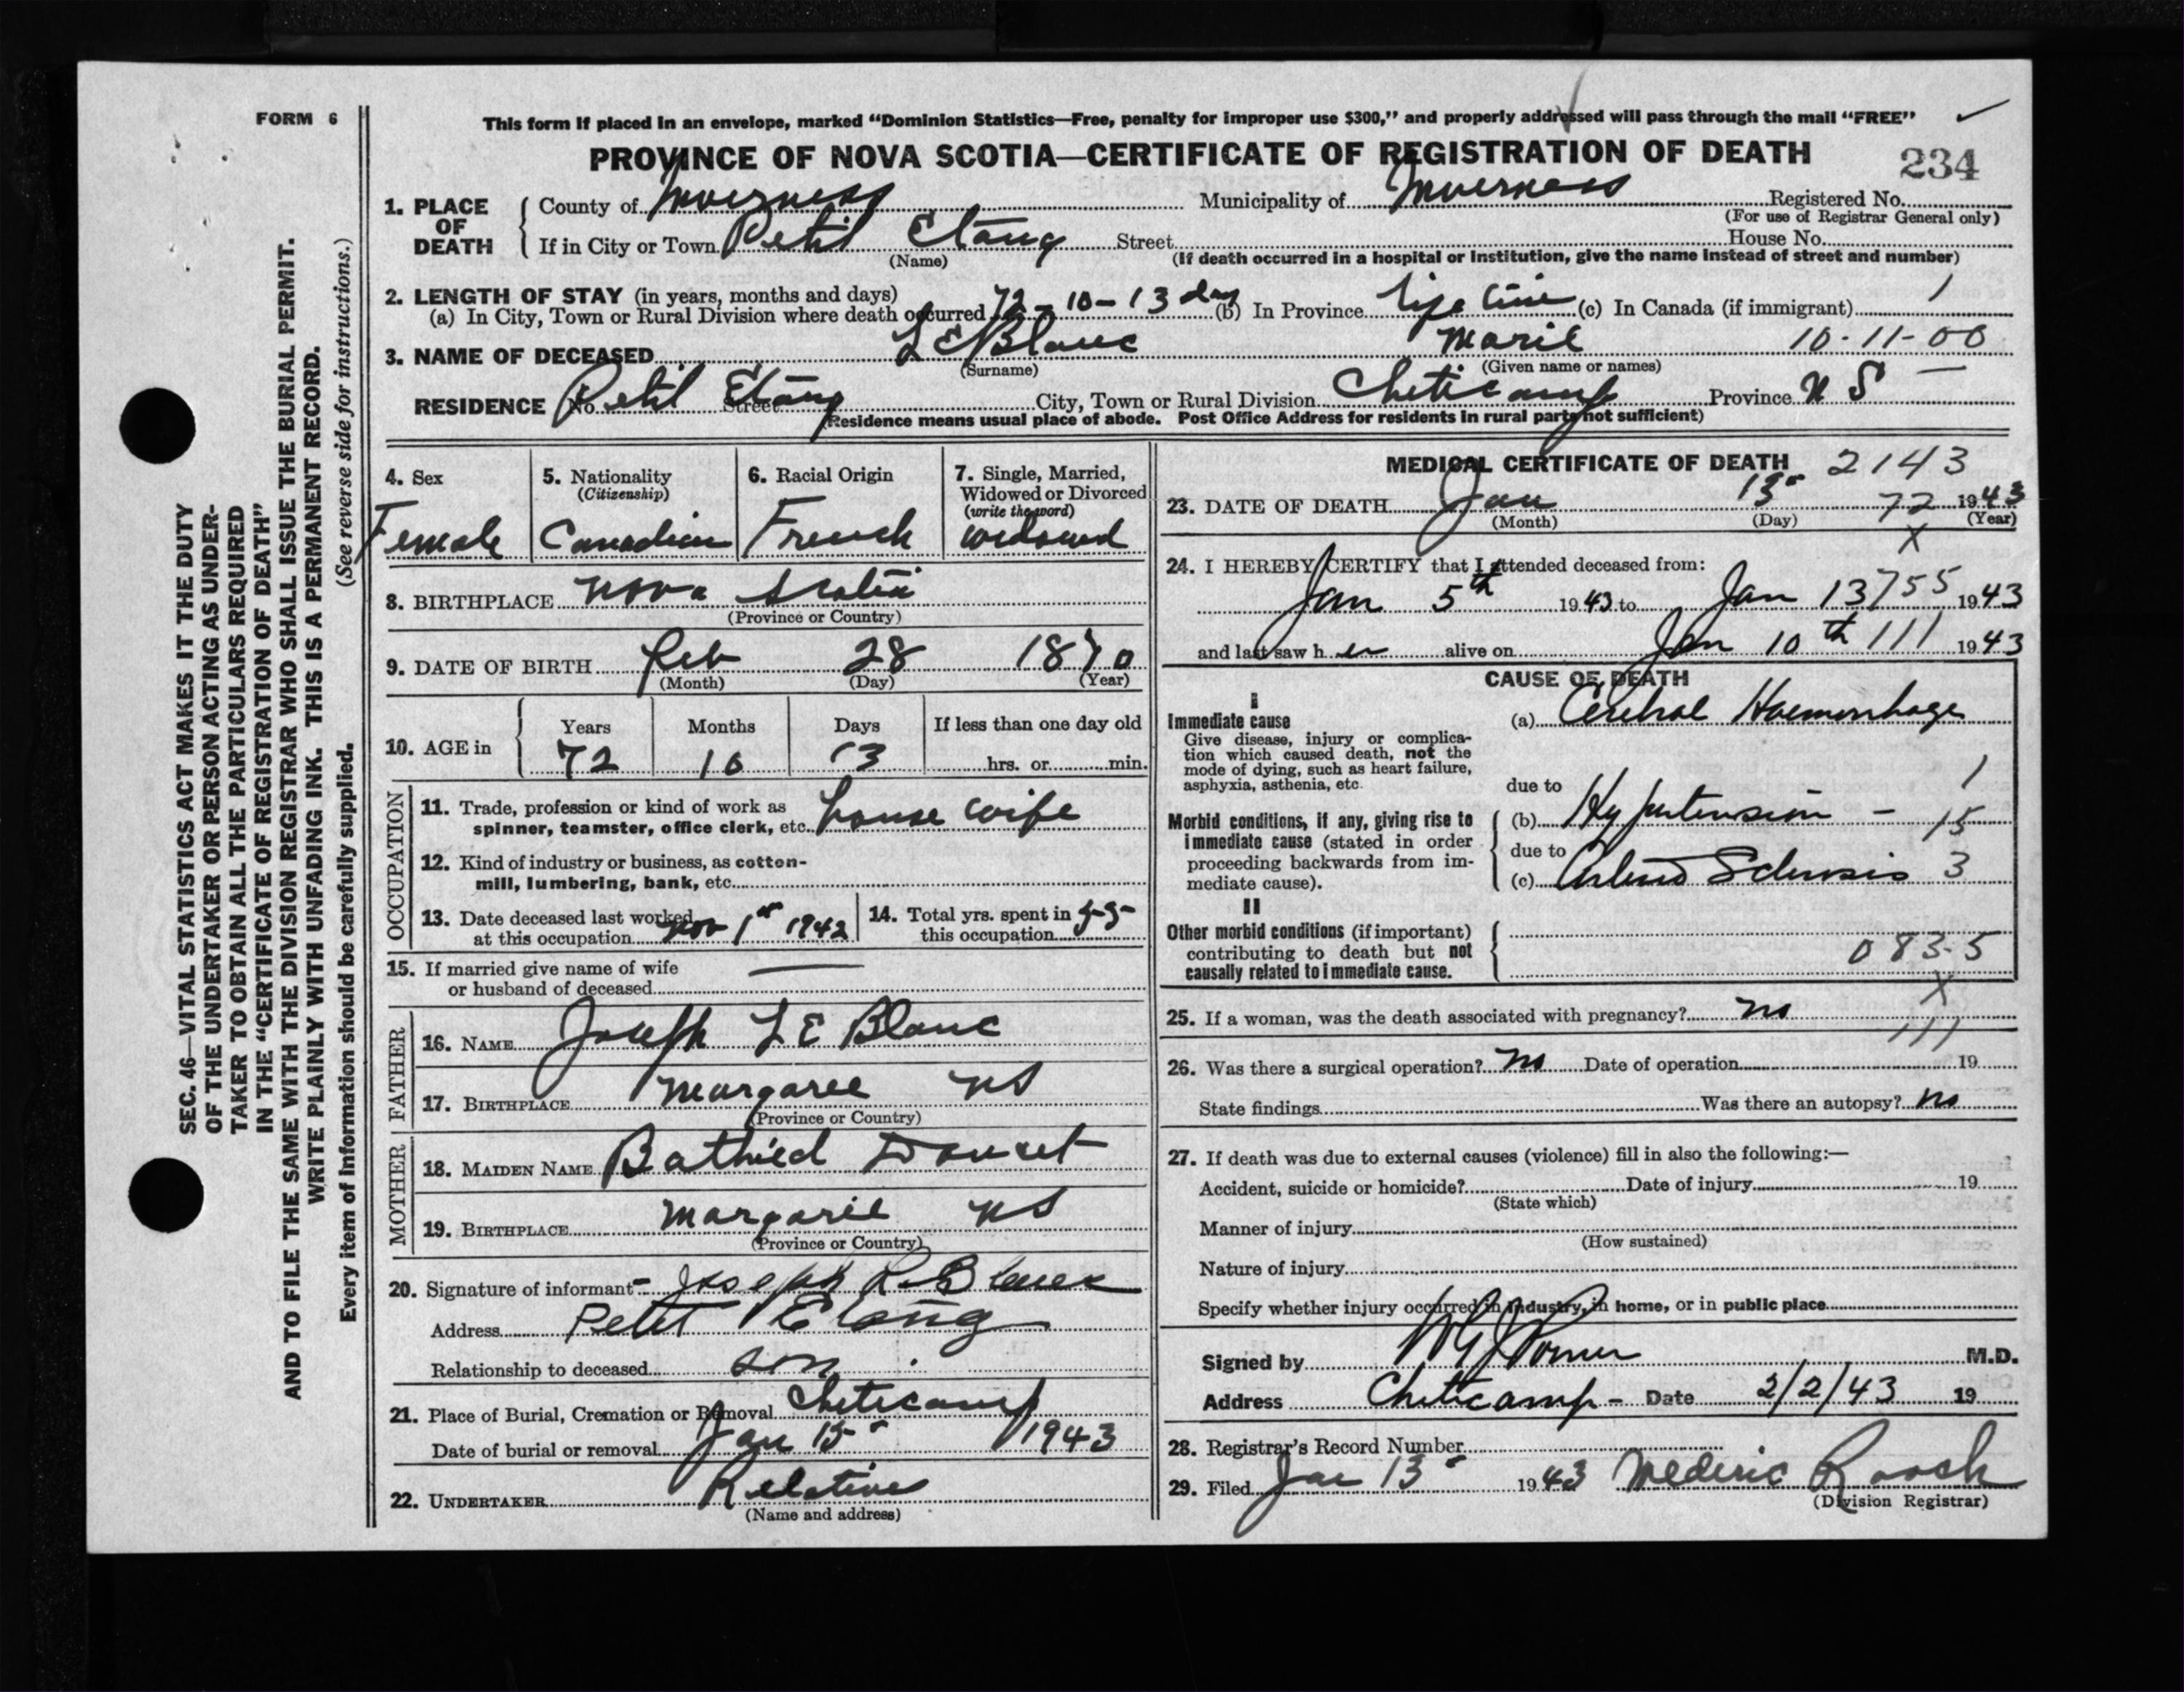 FORM 6
This form if placed in an envelope, marked “Dominion Statistics—Free, penalty for improper use $300,” and properly addressed will pass through the mail “FREE”
PROVINCE OF NOVA SCOTIA—CERTIFICATE OF REGISTRATION OF DEATH 234
1. PLACE OF DEATH
County of Inverness Municipality of Inverness Registered No.
(For use of Registrar General only)
If in City or Town Petit Etang Street House No.
(Name) (If death occurred in a hospital or institution, give the name instead of street and number)
2. LENGTH OF STAY (in years, months and days)
(a) In City, Town or Rural Division where death occurred 72-10-13 day (b) In Province Life time (c) In Canada (if immigrant) 1
3. NAME OF DECEASED LEBlanc Marie 10-11-00
(Surname) (Given name or names)
RESIDENCE No. Petit Etang Street City, Town or Rural Division Cheticamp Province N S
(Residence means usual place of abode. Post Office Address for residents in rural parts not sufficient)
4. Sex
Female
5. Nationality
(Citizenship)
Canadian
6. Racial Origin
French
7. Single, Married,
Widowed or Divorced
(write the word)
widowed
8. BIRTHPLACE Nova Scotia
(Province or Country)
9. DATE OF BIRTH Feb 28 1870
(Month) (Day) (Year)
10. AGE in
Years Months Days If less than one day old
72 10 13 hrs. or min.
OCCUPATION
11. Trade, profession or kind of work as
spinner, teamster, office clerk, etc. house wife
12. Kind of industry or business, as cotton-
mill, lumbering, bank, etc.
13. Date deceased last worked
at this occupation Nov 1st 1942
14. Total yrs. spent in
this occupation 55
15. If married give name of wife
or husband of deceased
FATHER
16. NAME Joseph LE Blanc
17. BIRTHPLACE Margaree NS
(Province or Country)
MOTHER
18. MAIDEN NAME Bathied Doucet
19. BIRTHPLACE Margarie NS
(Province or Country)
20. Signature of informant Joseph LeBlanc
Address Petit Etang
Relationship to deceased son
21. Place of Burial, Cremation or Removal Cheticamp
Date of burial or removal Jan 15 1943
22. UNDERTAKER Relatives
(Name and address)
MEDICAL CERTIFICATE OF DEATH 2143
23. DATE OF DEATH Jan 13 72 1943
(Month) (Day) (Year)
X
24. I HEREBY CERTIFY that I attended deceased from:
Jan 5th 1943 to Jan 13 755 1943
and last saw her alive on Jan 10th 111 1943
CAUSE OF DEATH
I
Immediate cause
Give disease, injury or complica-
tion which caused death, not the
mode of dying, such as heart failure,
asphyxia, asthenia, etc.
(a) Cerebral Haemorrhage
due to 1
Morbid conditions, if any, giving rise to
immediate cause (stated in order
proceeding backwards from im-
mediate cause).
(b) Hypertension – 15
due to
(c) Arterio Sclerosis 3
II
Other morbid conditions (if important)
contributing to death but not
causally related to immediate cause.
083-5
X
25. If a woman, was the death associated with pregnancy? no
111
26. Was there a surgical operation? No Date of operation 19
State findings Was there an autopsy? no
27. If death was due to external causes (violence) fill in also the following:—
Accident, suicide or homicide? Date of injury 19
(State which)
Manner of injury
(How sustained)
Nature of injury
Specify whether injury occurred in industry, in home, or in public place
Signed by M.D.
Address Cheticamp - Date 2/2/43 19
28. Registrar's Record Number
29. Filed Jan 13 1943 Mederic Roach
(Division Registrar)
SEC. 46—VITAL STATISTICS ACT MAKES IT THE DUTY
OF THE UNDERTAKER OR PERSON ACTING AS UNDER-
TAKER TO OBTAIN ALL THE PARTICULARS REQUIRED
IN THE “CERTIFICATE OF REGISTRATION OF DEATH”
AND TO FILE THE SAME WITH THE DIVISION REGISTRAR WHO SHALL ISSUE THE BURIAL PERMIT.
WRITE PLAINLY WITH UNFADING INK. THIS IS A PERMANENT RECORD.
Every item of information should be carefully supplied. (See reverse side for instructions.)